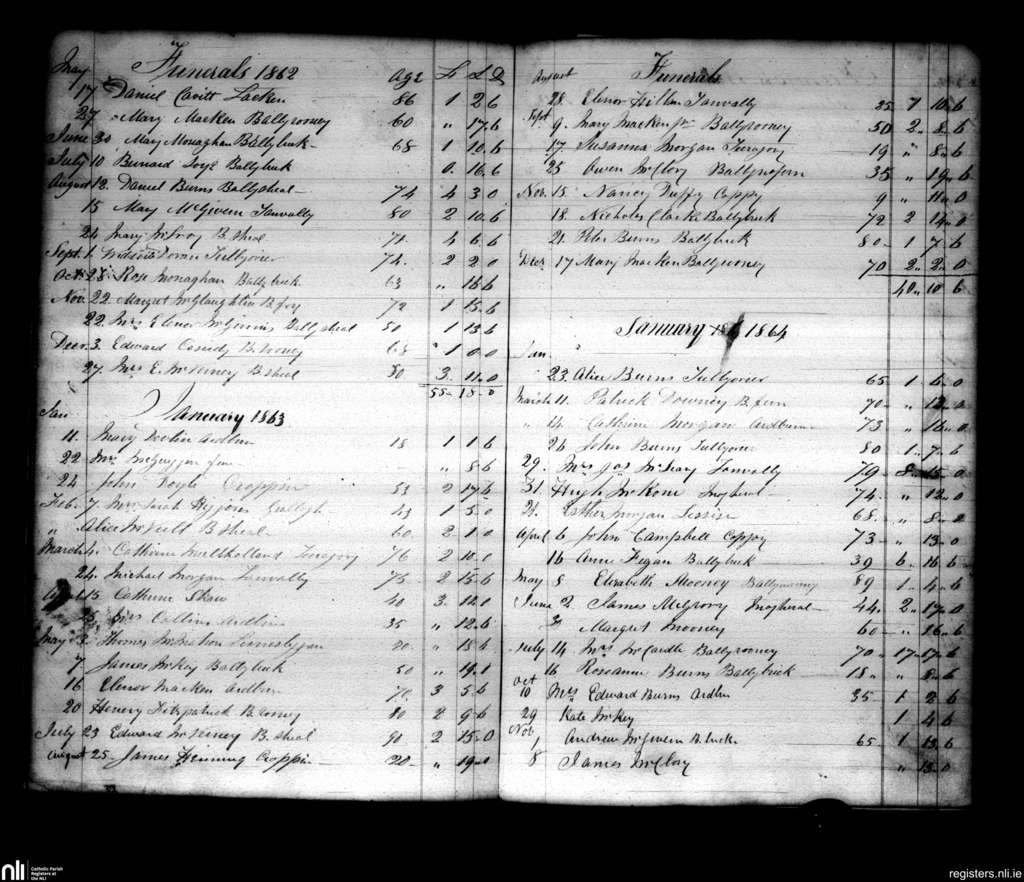 May Funerals 1862 Age £ S D
17 Daniel Cavitt Lacken 86 1 2 6
27 Mary Macken Ballyrooney 60 " 17 6
June 30 Mary Monaghan Ballybuk 68 1 10 6
July 10 Bernard Ballybuk 0 16 6
August 12 Daniel Burns Ballysheal 74 4 3 0
15 Mary McGivern Tanvally 80 2 10 6
24 Mary McIlroy B.sheal 71 4 6 6
Sept. 1 Doran Tullyorier 74 2 2 0
Oct. 28 Rose Monaghan Ballybuk 63 " 18 6
Nov. 22 Margret McGlaughlin 72 1 15 6
22 Mrs Elenor McGinnis Ballysheal 50 1 13 6
Decr. 3 Edward Cassidy B.rooney 68 1 0 0
27 Mrs E. McNerney B.sheal 80 3 11 0
55 18 0
Jan January 1863
11 Mary Ardbrin 18 1 1 6
22 Mrs " 8 6
24 John Doyle Croppin 53 2 17 6
Feb. 7 Mrs Sarah Higgons 43 1 5 0
" Alice McNeill B.sheal 60 2 1 0
March 4 Catherine Mullholland Tirygory 76 2 10 0
24 Michael Morgan Tanvally 75 2 15 6
15 Catherine Shaw 40 3 12 1
Mrs Collins Ardbrin 35 " 12 6
May 3 Thomas McMahon 20 " 13 6
7 James McKey Ballybuk 50 " 19 1
16 Elenor Macken Ardbrin 70 3 5 6
20 Henery Fitzpatrick B.rooney 80 2 9 6
July 23 Edward McNerney B.sheal 90 2 15 0
August 25 James Henning Croppin 20 " 19 0
August Funerals
28 Elenor Tanvally 25 7 10 6
Sept. 9 Mary Macken Ballyrooney 50 2 8 6
17 Susanna Morgan Tirygory 19 " 8 6
25 Owen McClory 35 " 19 6
Nov. 15 Nancy Duffy Coppy 9 " 11 0
18 Nicholas Clarke Ballybuk 72 2 14 0
21 Peter Burns Ballybuk 80 1 7 6
Decr 17 Mary Macken Ballyrooney 70 2 2 0
40 10 6
January 1864
Jan.
23 Alice Burns Tullyorier 65 1 6 0
March 11 Patrick Downey B.fern 70 " 12 0
" 14 Catherine Morgan Ardbrin 73 " 16 0
26 John Burns Tullyorier 80 1 7 6
29 Mrs Jas McLeary Tanvally 79 8 15 0
31 Hugh McKone 74 " 12 0
Esther Morgan Lissize 68 " 8 0
April 6 John Campbell Coppy 73 " 13 0
16 Anne Fegan Ballybuk 39 6 16 6
May 8 Elizabeth Mooney Ballyrooney 89 1 4 6
June 2 James McGrory 44 2 17 0
3 Margret Mooney 60 " 16 6
July 14 Mrs McCardle Ballyrooney 70 17 17 6
16 Roseanne Burns Ballybrick 18 " 8 6
Oct 10 Mrs Edward Burns Ardbrin 35 1 2 6
29 Kate McKey 1 4 6
Nob. 1 Andrew McGivern B.buck 65 1 13 6
8 James McClory " 15 0
nli Catholic Parish Registers at the NLI
registers.nli.ie